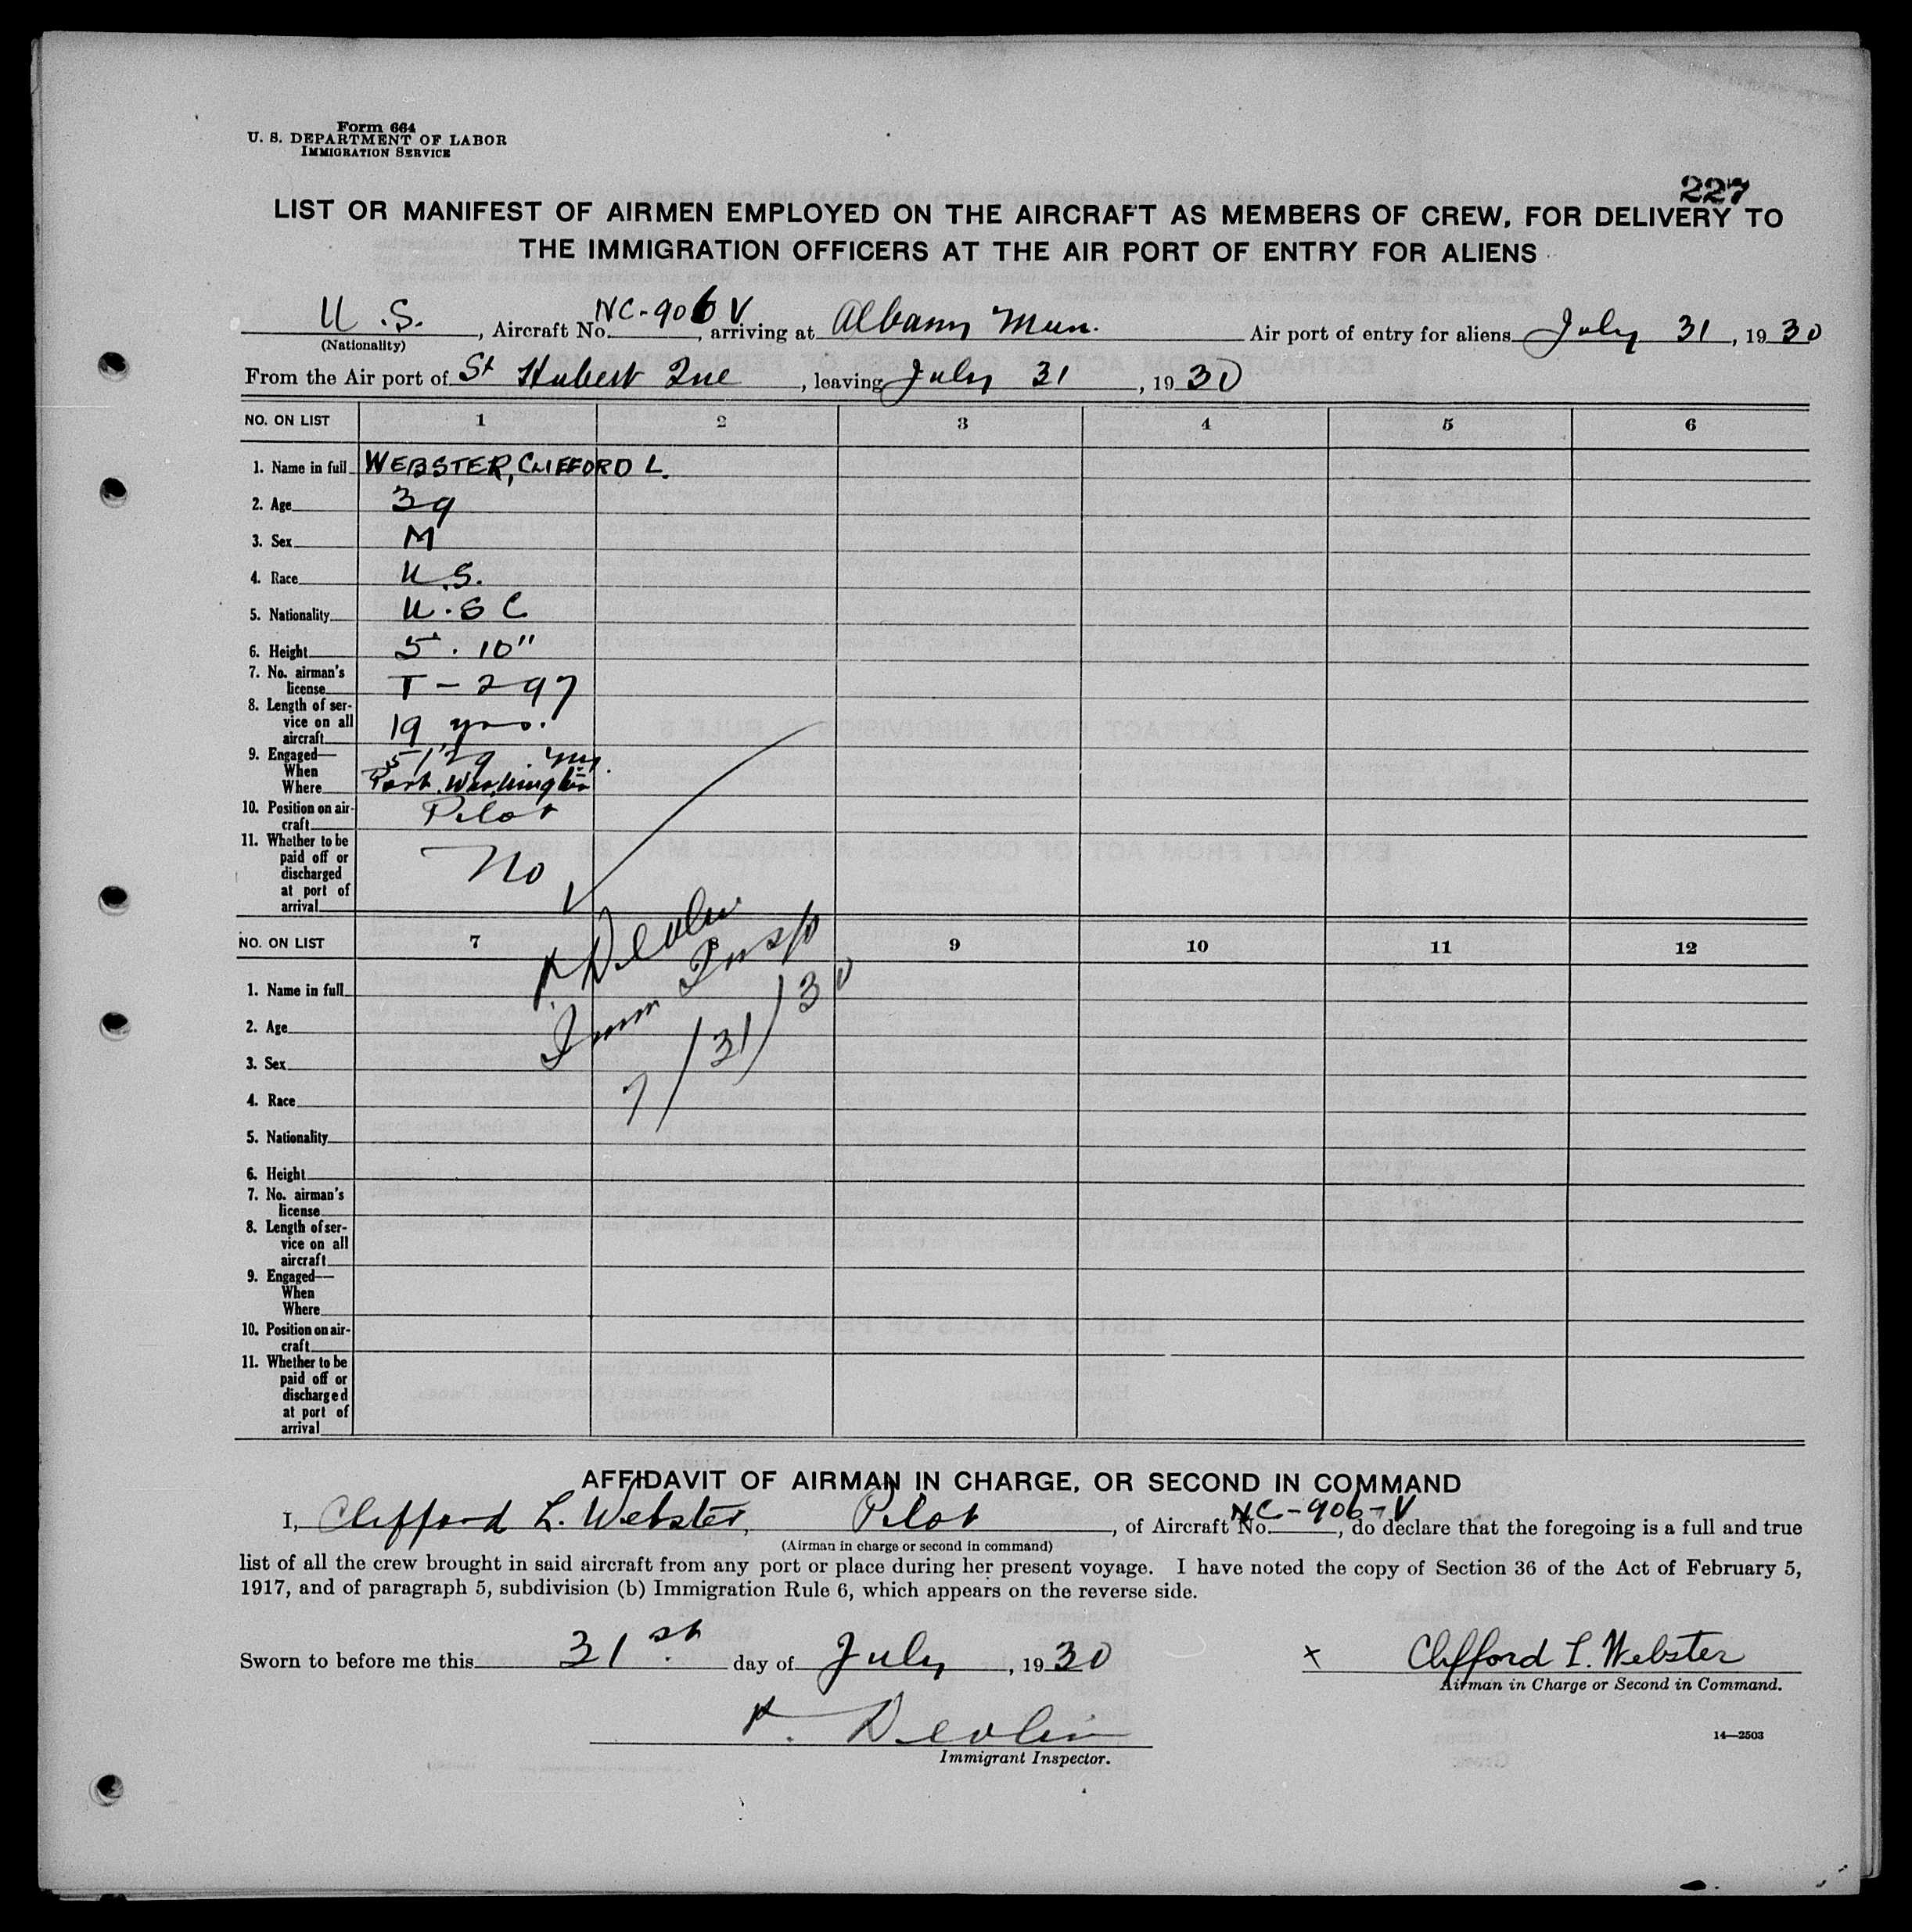 Form 664
U. S. DEPARTMENT OF LABOR
IMMIGRATION SERVICE
227
LIST OR MANIFEST OF AIRMEN EMPLOYED ON THE AIRCRAFT AS MEMBERS OF CREW, FOR DELIVERY TO
THE IMMIGRATION OFFICERS AT THE AIR PORT OF ENTRY FOR ALIENS
U.S., Aircraft No. NC-906V, arriving at Albany Mun. Air port of entry for aliens July 31, 1930
(Nationality)
From the Air port of St Hubert Que, leaving July 31, 1930
NO. ON LIST 1 2 3 4 5 6
1. Name in full WEBSTER, CLIFFORD L.
2. Age 39
3. Sex M
4. Race U.S.
5. Nationality U.S C
6. Height 5' . 10"
7. No. airman's
license T-297
8. Length of ser-
vice on all
aircraft 19 yrs.
9. Engaged—
When 5/29
Where Port Washington
10. Position on air-
craft Pilot
11. Whether to be
paid off or
discharged
at port of
arrival No
NO. ON LIST 7 8 9 10 11 12
Devlin
Imm Insp
7/31/30
1. Name in full
2. Age
3. Sex
4. Race
5. Nationality
6. Height
7. No. airman's
license
8. Length of ser-
vice on all
aircraft
9. Engaged—
When
Where
10. Position on air-
craft
11. Whether to be
paid off or
discharged
at port of
arrival
AFFIDAVIT OF AIRMAN IN CHARGE, OR SECOND IN COMMAND
I, Clifford L. Webster, Pilot, of Aircraft No. NC-906-V, do declare that the foregoing is a full and true
(Airman in charge or second in command)
list of all the crew brought in said aircraft from any port or place during her present voyage. I have noted the copy of Section 36 of the Act of February 5,
1917, and of paragraph 5, subdivision (b) Immigration Rule 6, which appears on the reverse side.
Sworn to before me this 31st day of July, 1930 x Clifford L. Webster
Airman in Charge or Second in Command.
Devlin
Immigrant Inspector.
14—2503